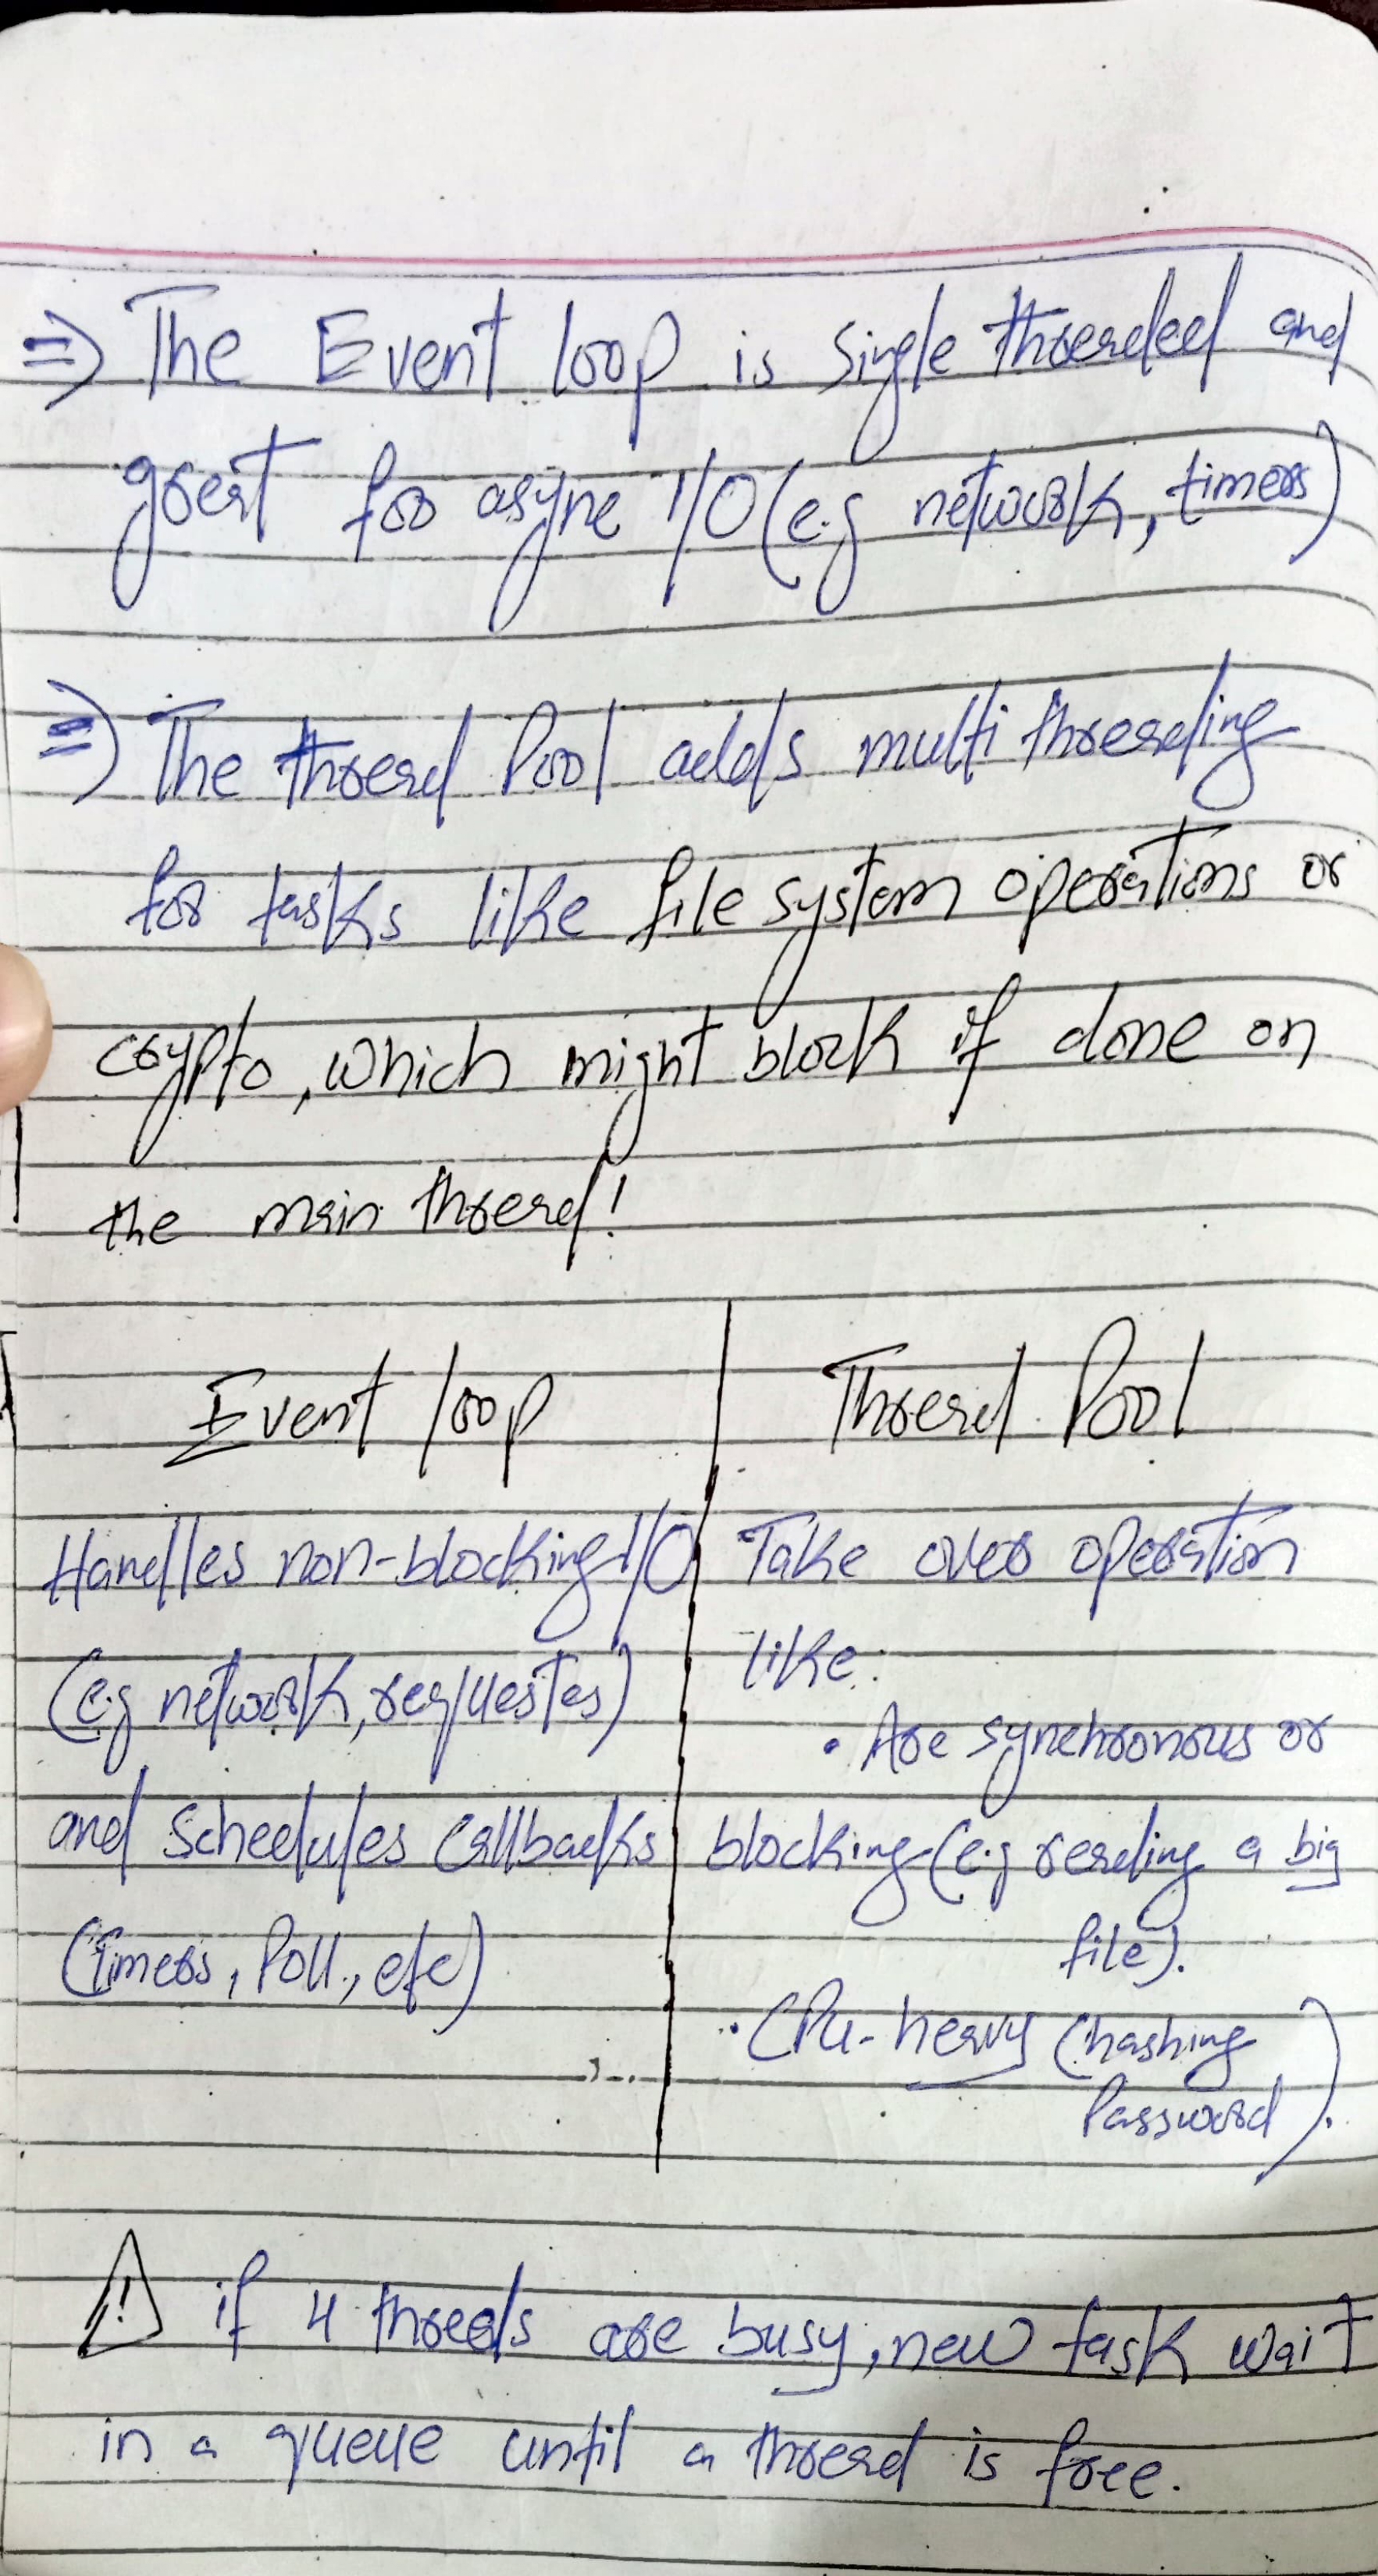 ⇒ The Event loop is single threaded and
great for async I/O (e.g network, timers)
⇒ The thread Pool adds multi threading
for tasks like file system operations or
crypto, which might block if done on
the main thread!
Event loop
Handles non-blocking I/O
(e.g network, requestes)
and schedules callbacks
(timers, Poll, etc)
Thread Pool
Take over operation
like:
• Are synchronous or
blocking (e.g reading a big
file).
• CPU-heavy (hashing
Password).
⚠ if 4 threds are busy, new task wait
in a queue until a thread is free.